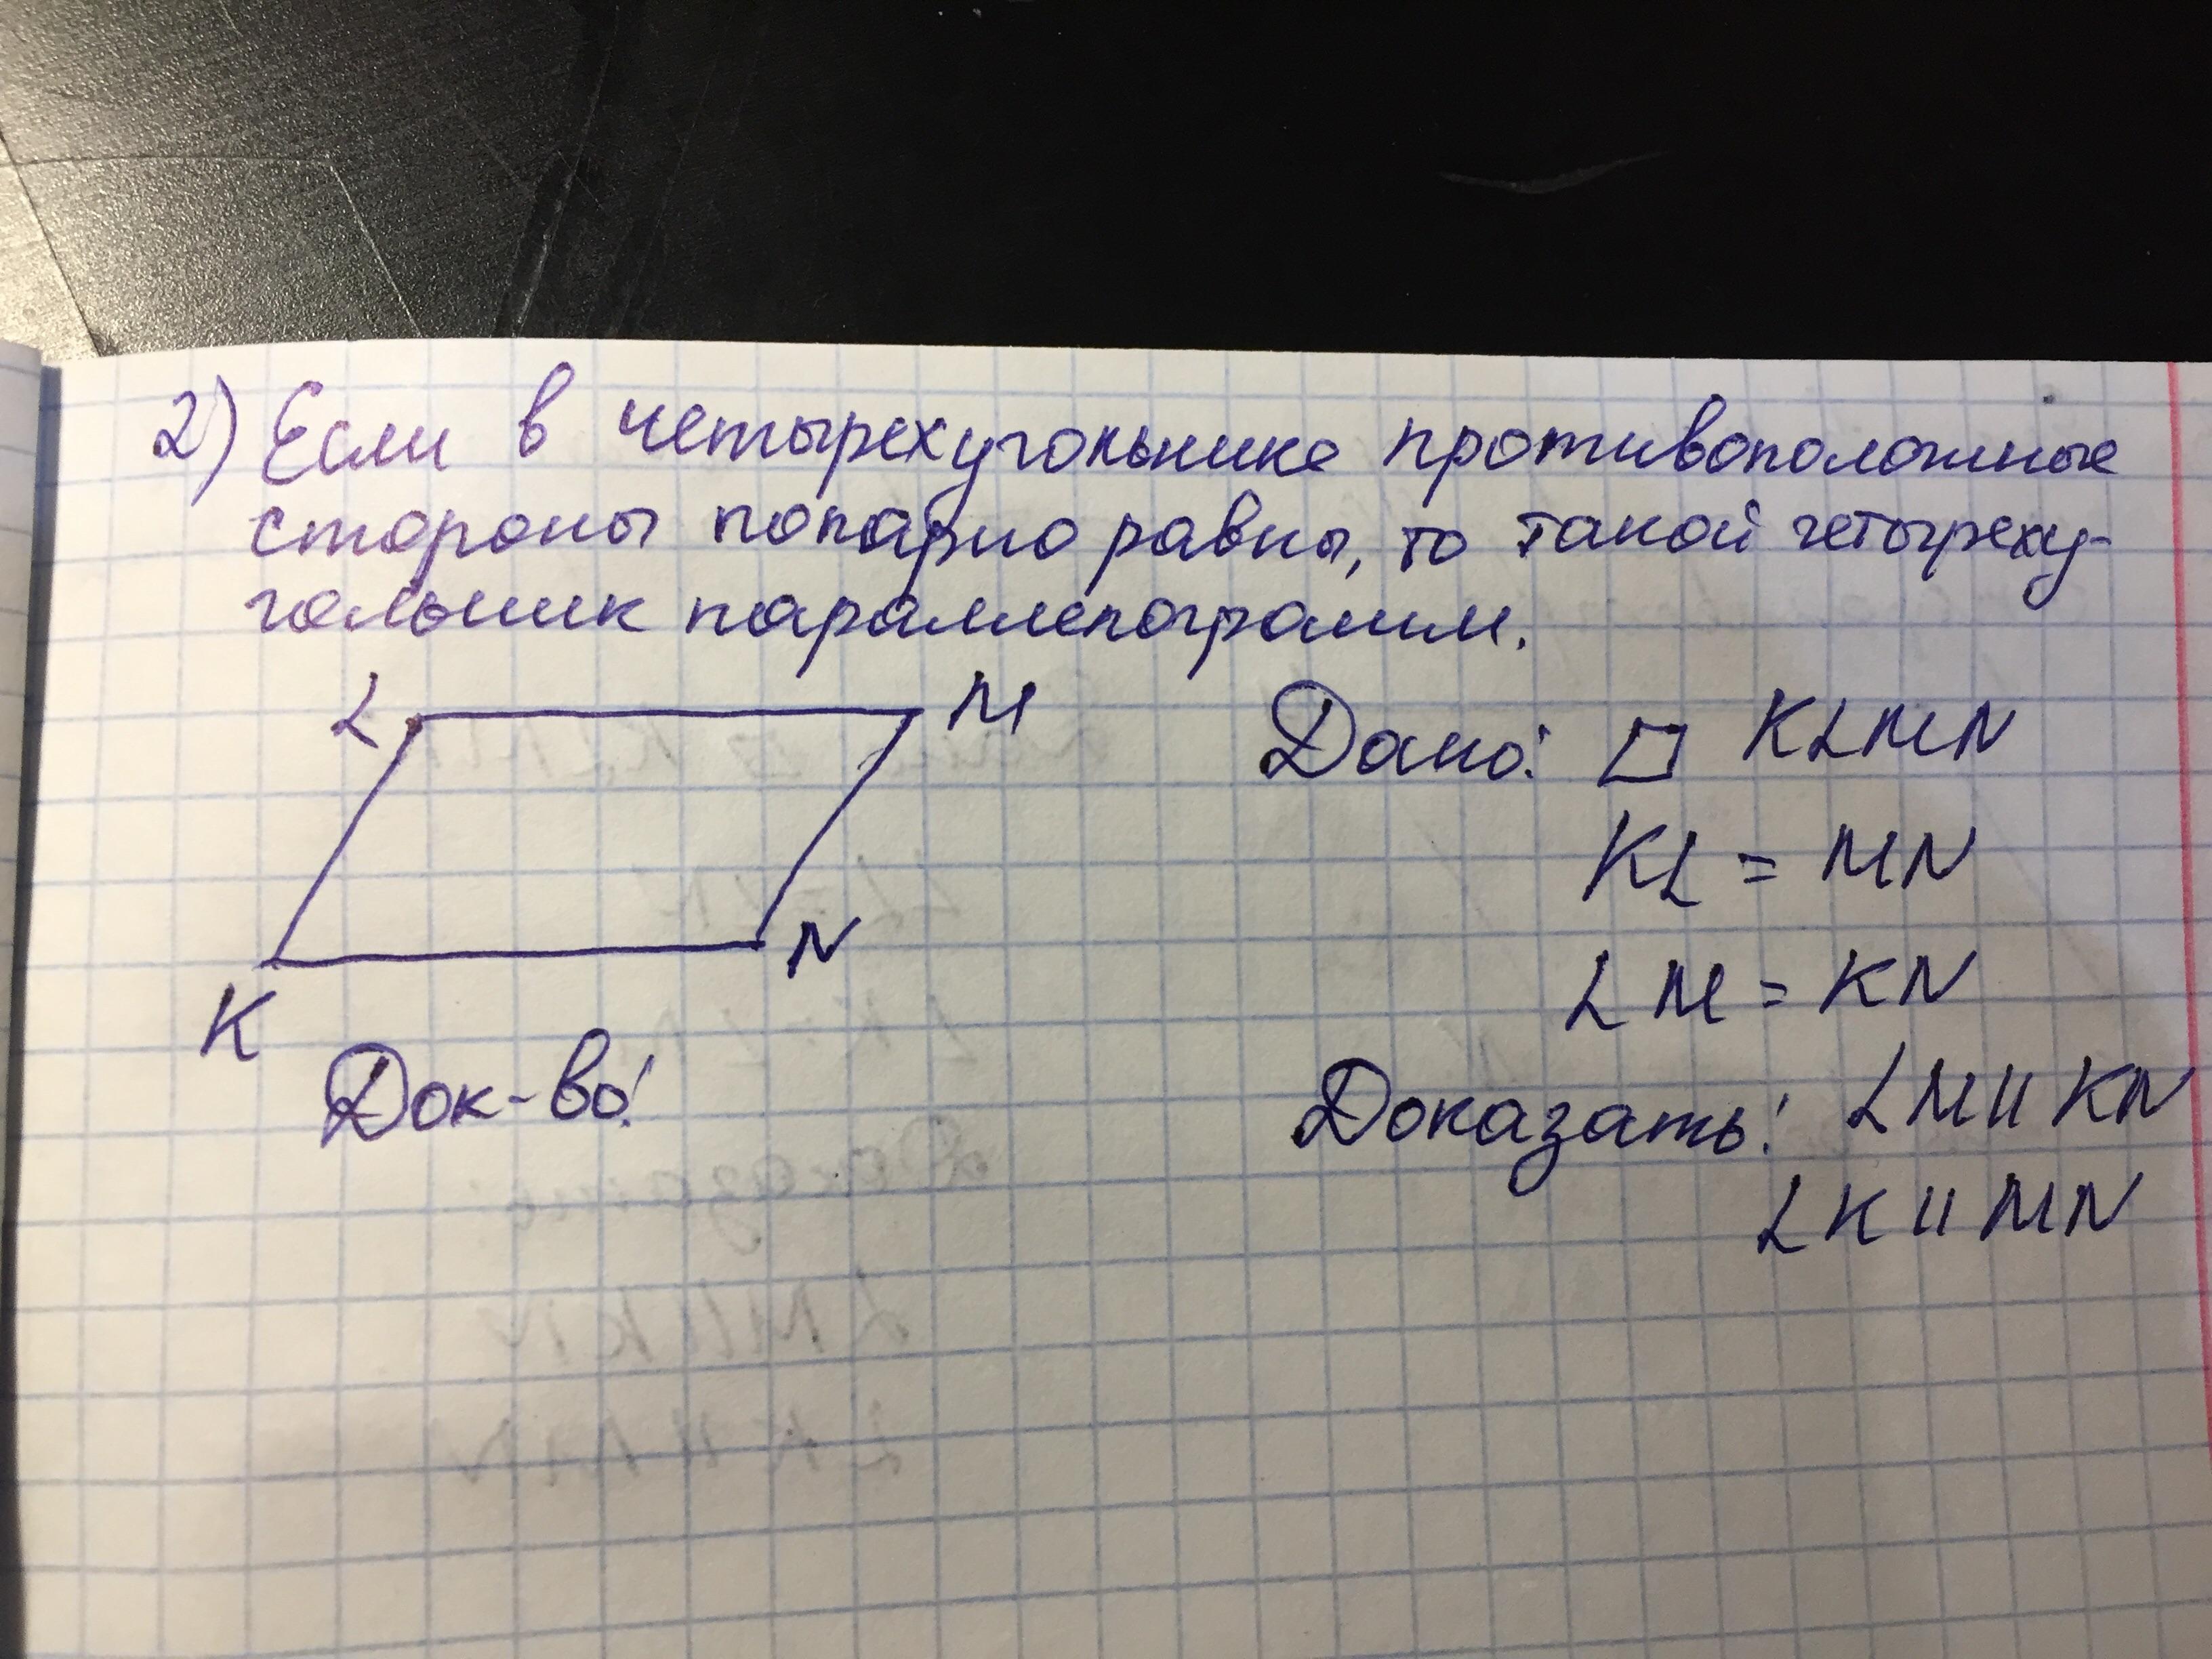 2) Если в четырехугольнике противоположные
стороны попарно равны, то такой четыреху-
гольник параллелограмм.
L M
K N
Дано: □ KLMN
KL = MN
LM = KN
Доказать: LM || KN
LK || MN
Док-во: